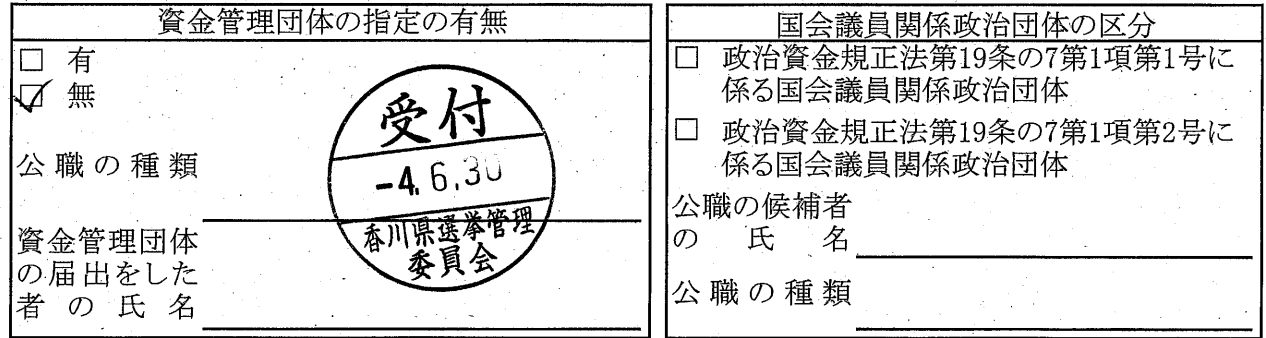 資金管理団体の指定の有無
□ 有
☑ 無
公職の種類
資金管理団体
の届出をした
者の氏名
受付
-4.6.30
香川県選挙管理
委員会
国会議員関係政治団体の区分
□ 政治資金規正法第19条の7第1項第1号に
係る国会議員関係政治団体
□ 政治資金規正法第19条の7第1項第2号に
係る国会議員関係政治団体
公職の候補者
の氏名
公職の種類